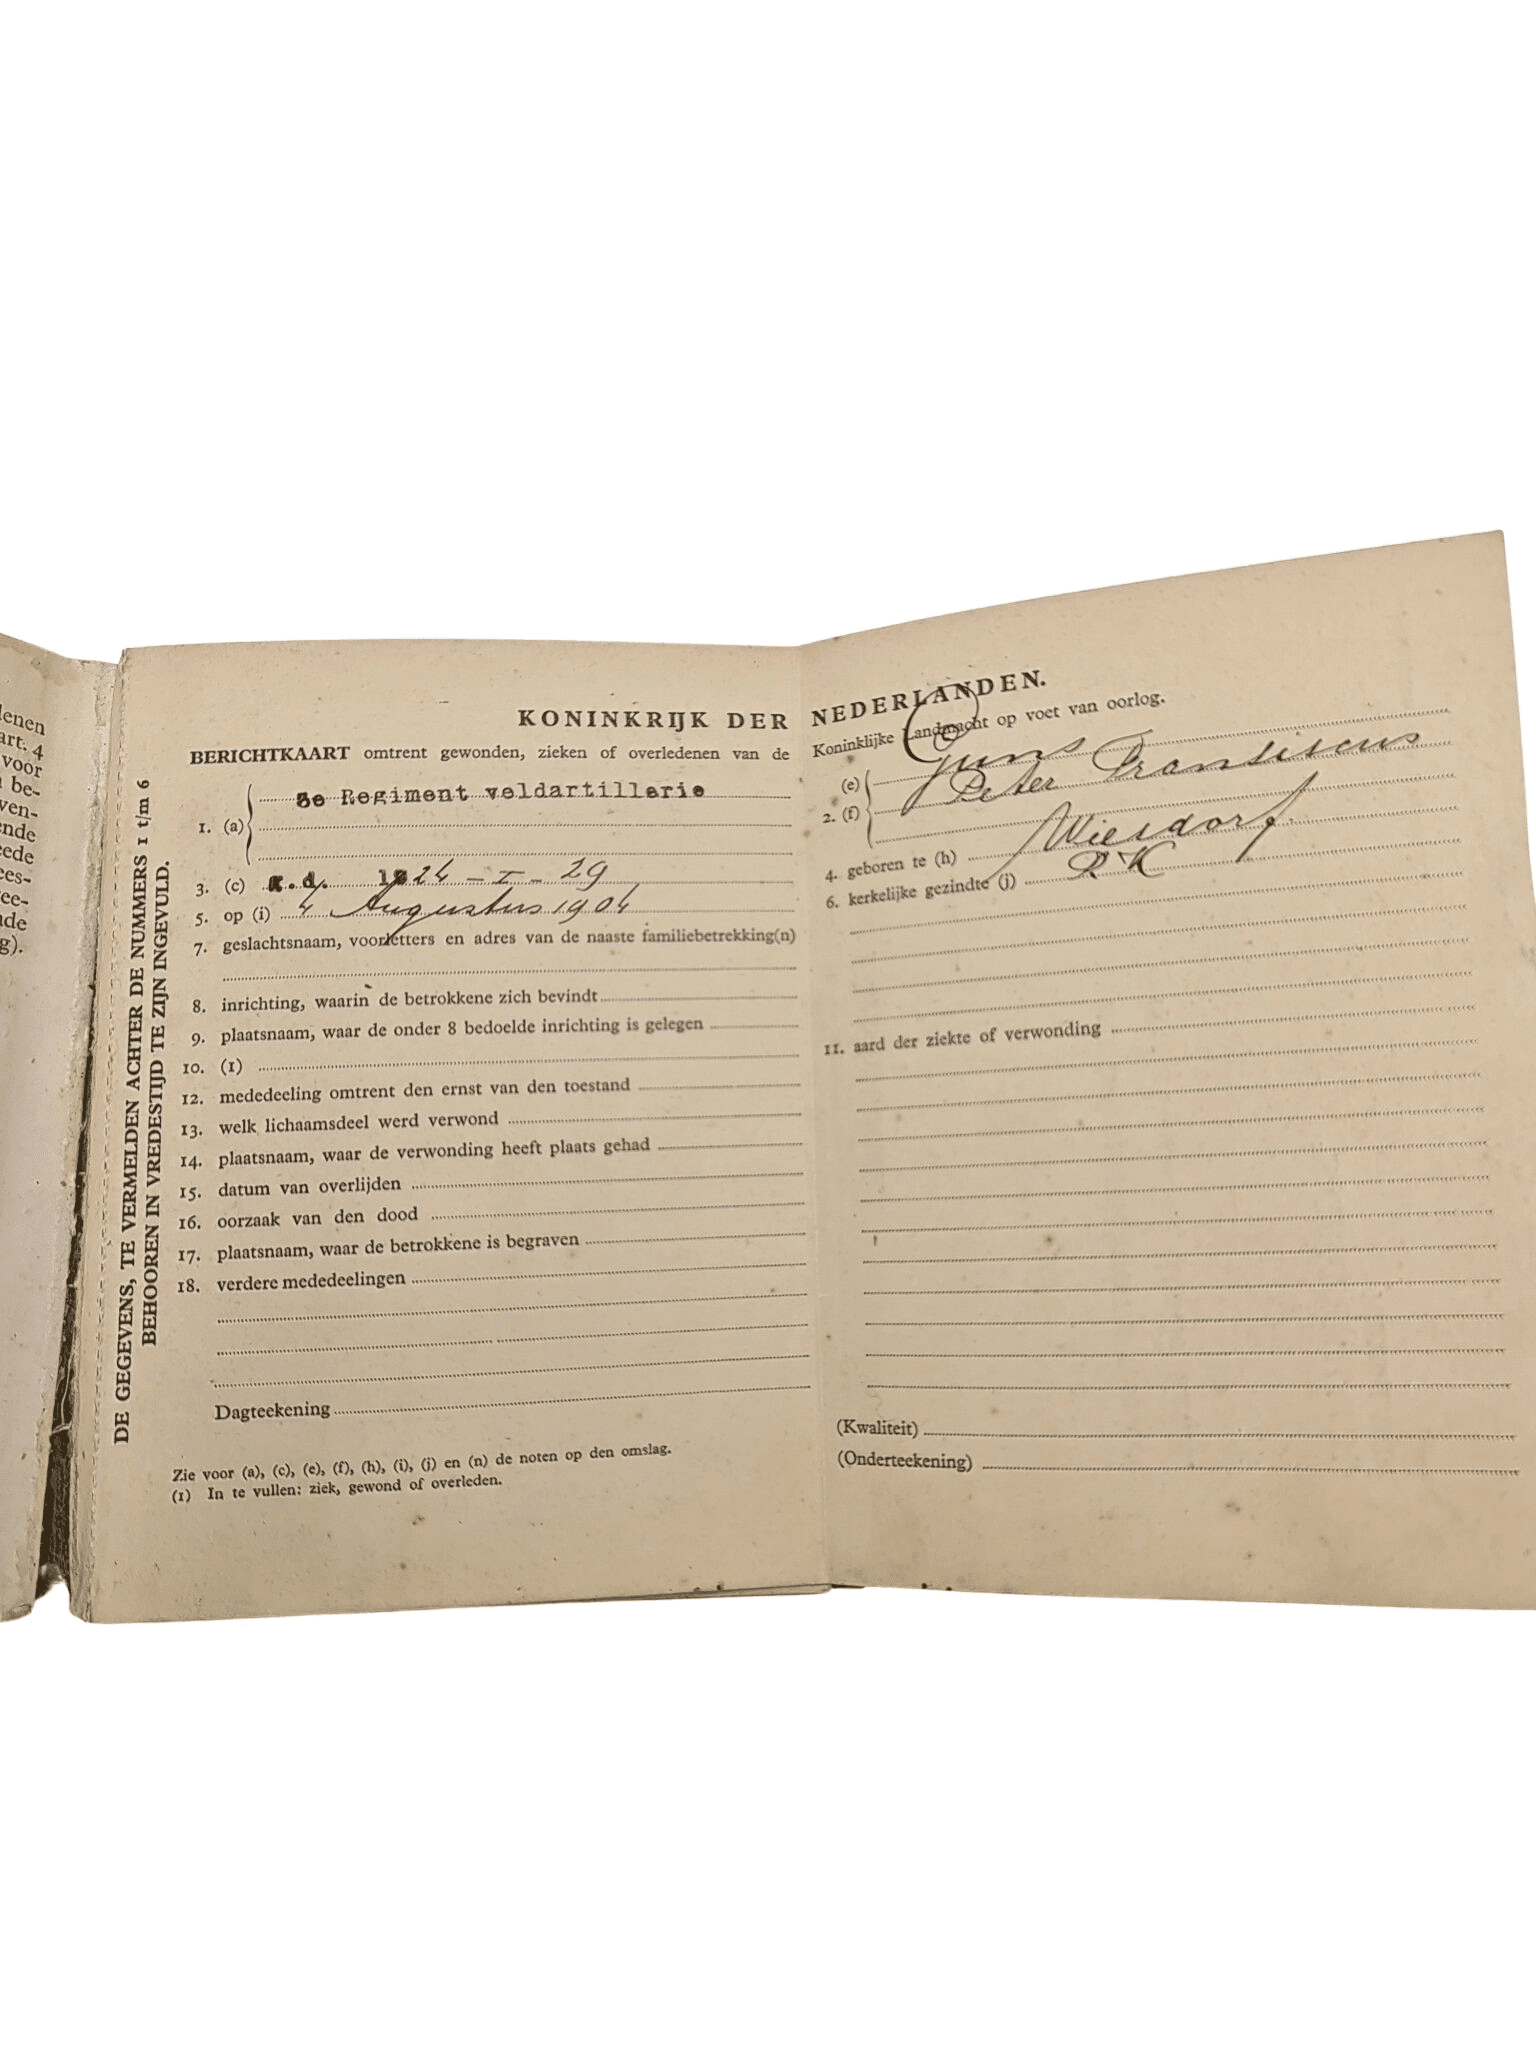 lenen
art. 4
voor
n be-
ven-
ende
eede
ees-
ee-
nde
g).
DE GEGEVENS, TE VERMELDEN ACHTER DE NUMMERS 1 t/m 6
BEHOOREN IN VREDESTIJD TE ZIJN INGEVULD.
KONINKRIJK DER NEDERLANDEN.
BERICHTKAART omtrent gewonden, zieken of overledenen van de Koninklijke Landmacht op voet van oorlog.
1. (a) 3e Regiment veldartillerie
(e) Guns
2. (f) Peter Fransiscus
3. (c) K.d. 1924 - I - 29
4. geboren te (h) Wiesdorf.
5. op (i) 4 Augustus 1904
6. kerkelijke gezindte (j) RK
7. geslachtsnaam, voorletters en adres van de naaste familiebetrekking(n)
8. inrichting, waarin de betrokkene zich bevindt
9. plaatsnaam, waar de onder 8 bedoelde inrichting is gelegen
10. (1)
11. aard der ziekte of verwonding
12. mededeeling omtrent den ernst van den toestand
13. welk lichaamsdeel werd verwond
14. plaatsnaam, waar de verwonding heeft plaats gehad
15. datum van overlijden
16. oorzaak van den dood
17. plaatsnaam, waar de betrokkene is begraven
18. verdere mededeelingen
Dagteekening
(Kwaliteit)
(Onderteekening)
Zie voor (a), (c), (e), (f), (h), (i), (j) en (n) de noten op den omslag.
(1) In te vullen: ziek, gewond of overleden.